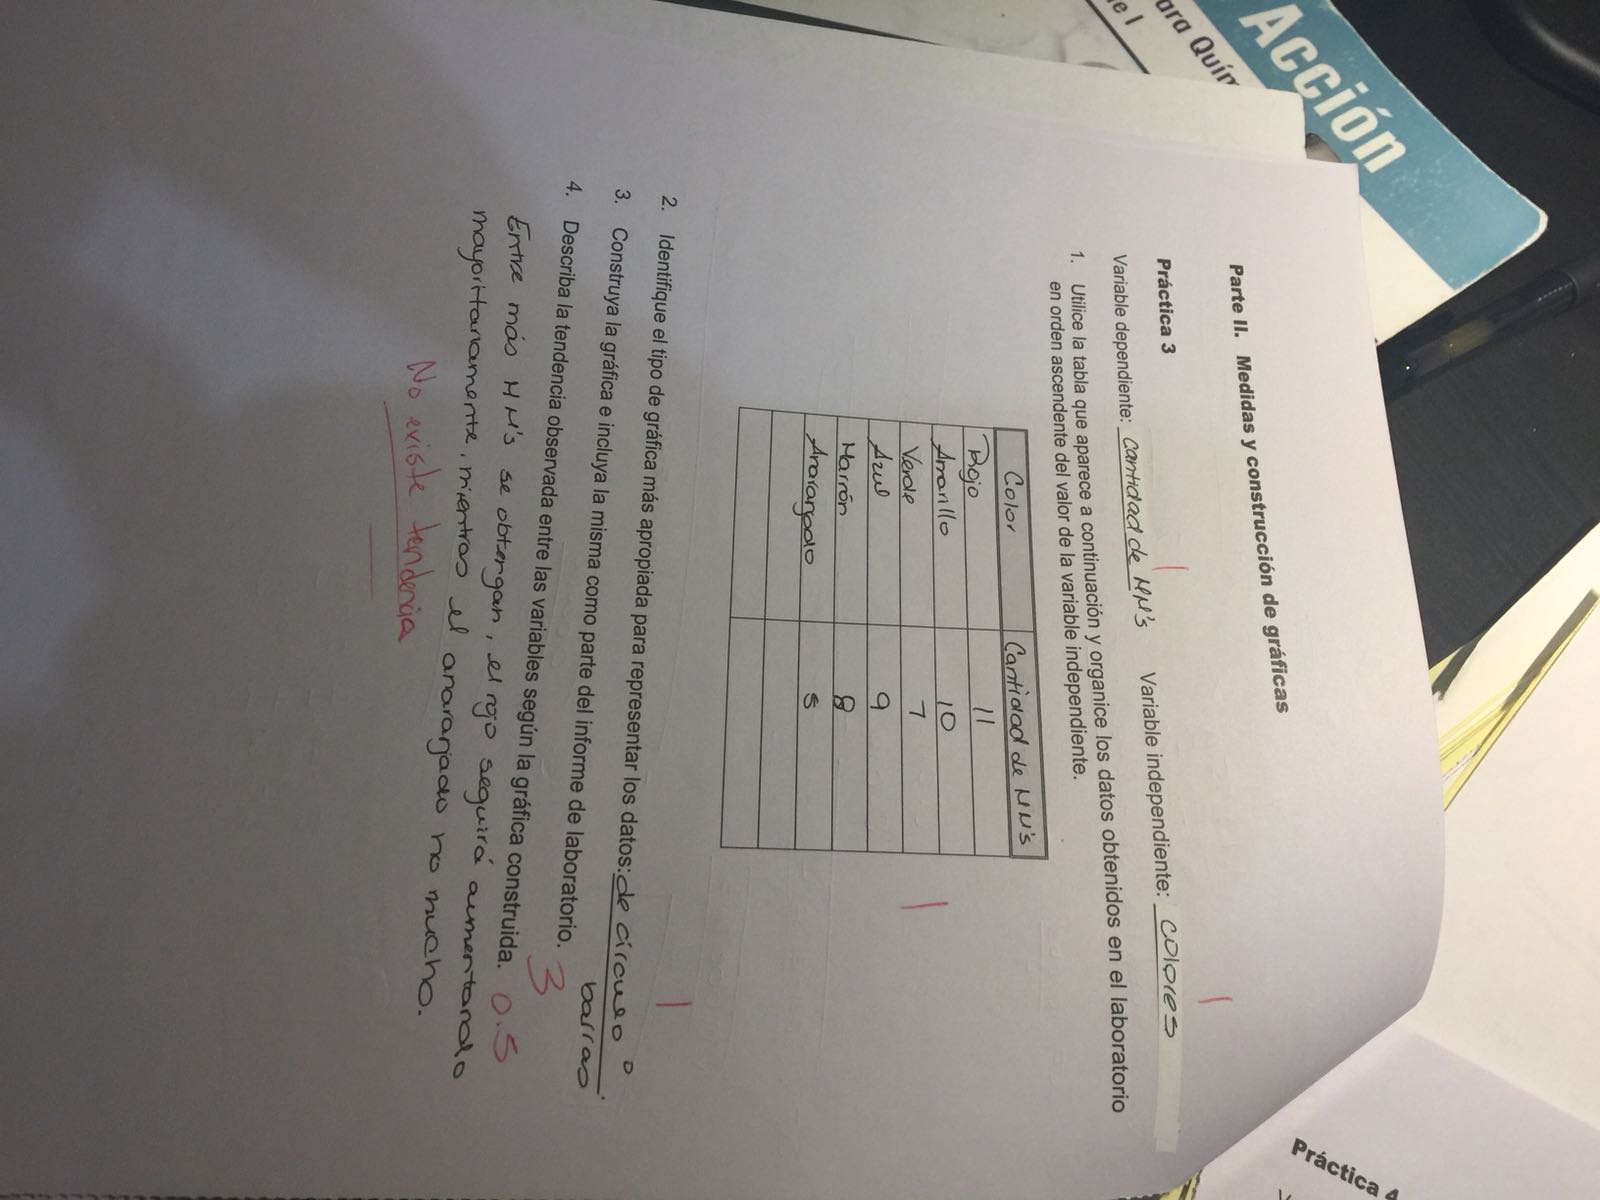 Acción
ara Quím
e I
Parte II. Medidas y construcción de gráficas
Práctica 3
Variable dependiente: Cantidad de MN's Variable independiente: colores
1. Utilice la tabla que aparece a continuación y organice los datos obtenidos en el laboratorio
en orden ascendente del valor de la variable independiente.
Color Cantidad de MN's
Rojo 11
Amarillo 10
Verde 7
Azul 9
Marrón 8
Anaranjado 5
2. Identifique el tipo de gráfica más apropiada para representar los datos: de círculo o
barras.
3. Construya la gráfica e incluya la misma como parte del informe de laboratorio. 3
4. Describa la tendencia observada entre las variables según la gráfica construida. 0.5
Entre más MN's se obtengan, el rojo seguirá aumentando
mayorittariamente, mientras el anaranjado no mucho.
No existe tendencia
Práctica 4